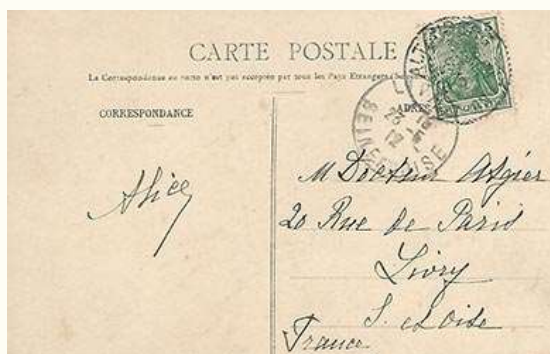 CARTE POSTALE
La Correspondance au recto n'est pas acceptée par tous les Pays Etrangers
CORRESPONDANCE
SEINE ET OISE
Alice
M Docteur Azgier
20 Rue de Paris
Livry
S. et Oise
France